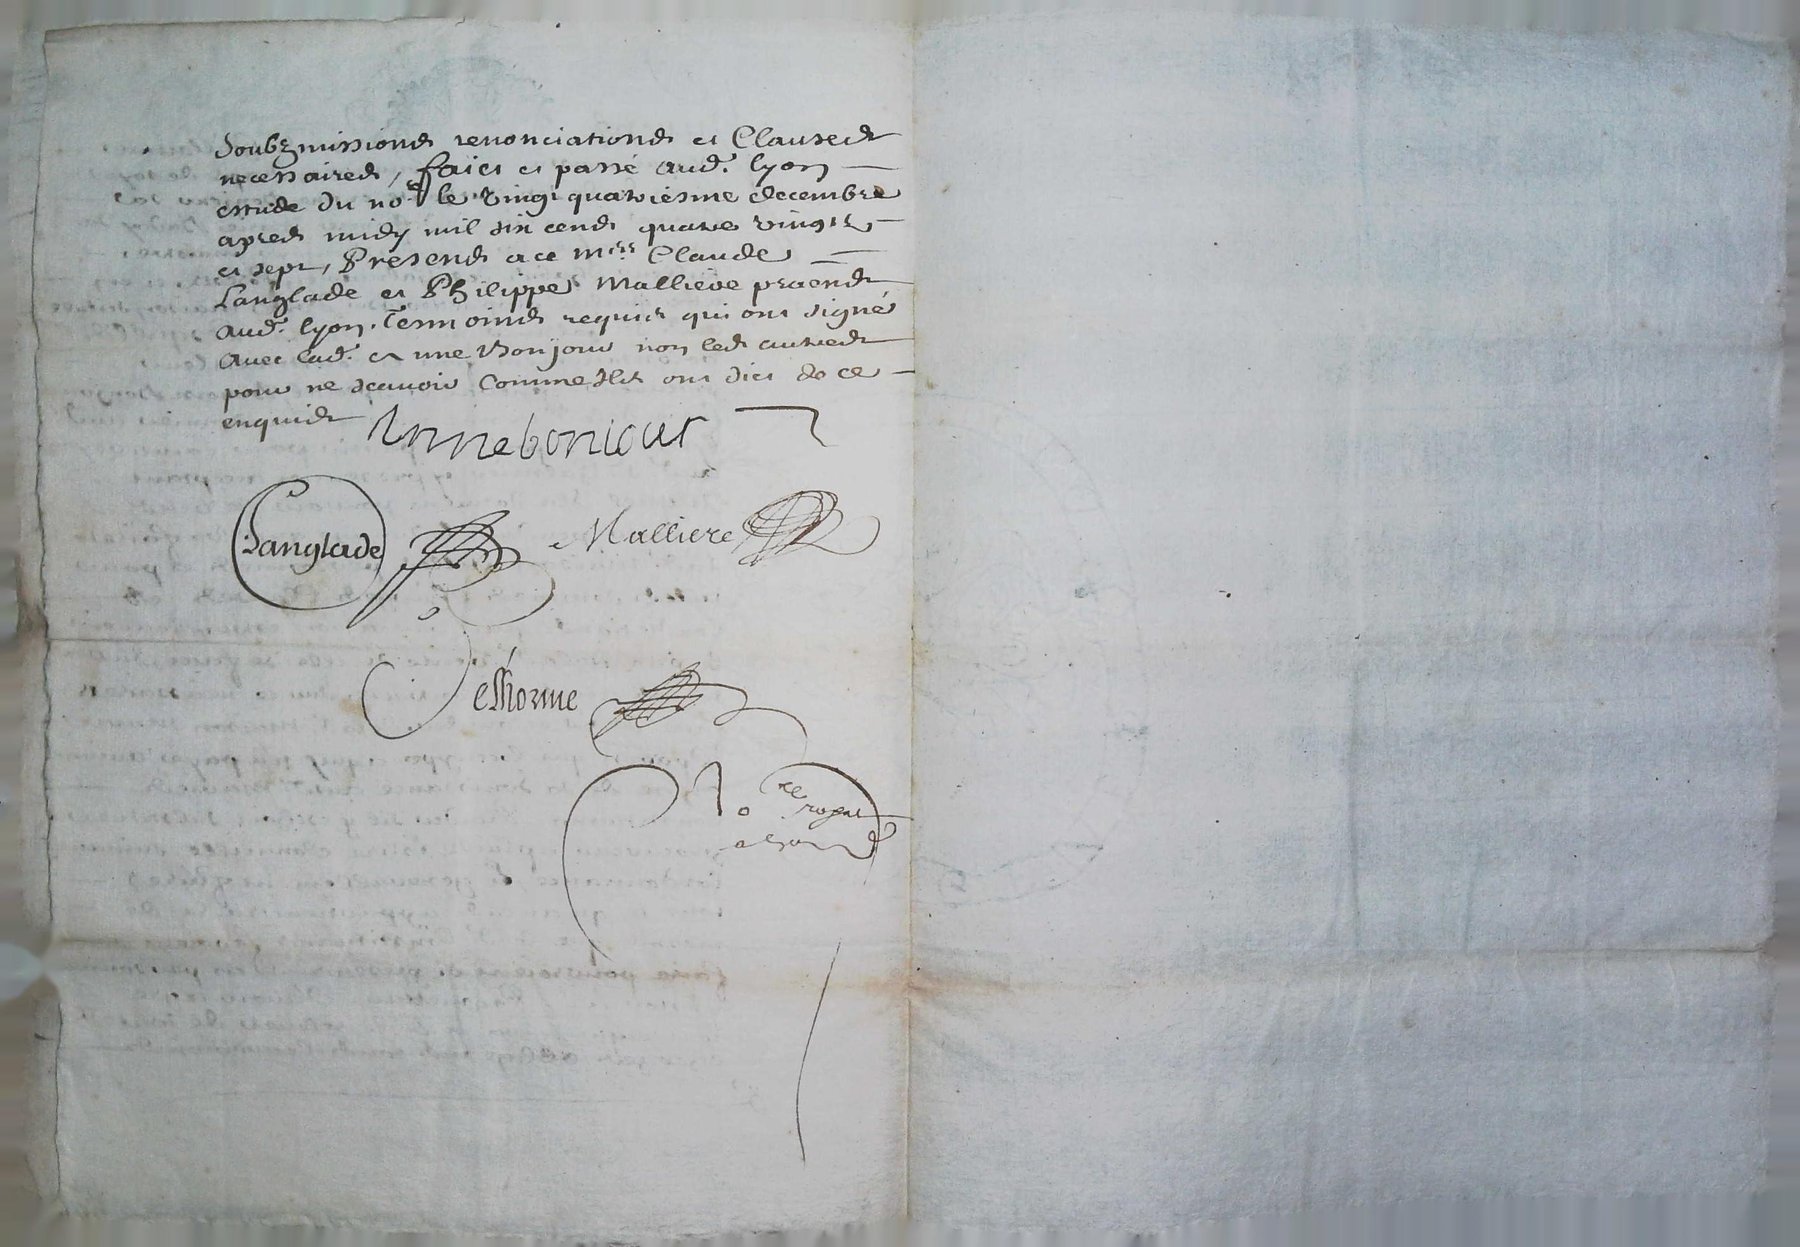 soubzmissions renonciations et Clauses
necessaires, faict et passé aud. lyon
estude du no.re le vingt quatriesme decembre
apres midy mil six cents quatre vingts
et sept, Presents a ce mrs Claude
Langlade et Philippe Malliere praens
aud. lyon. Tesmoins requis qui ont signé
avec lad. et une Bonjour non les autres
pour ne scavoir Comme Ils ont dict de ce
enquis
Anne boniour
Langlade Malliere
Delhorme
No re royal